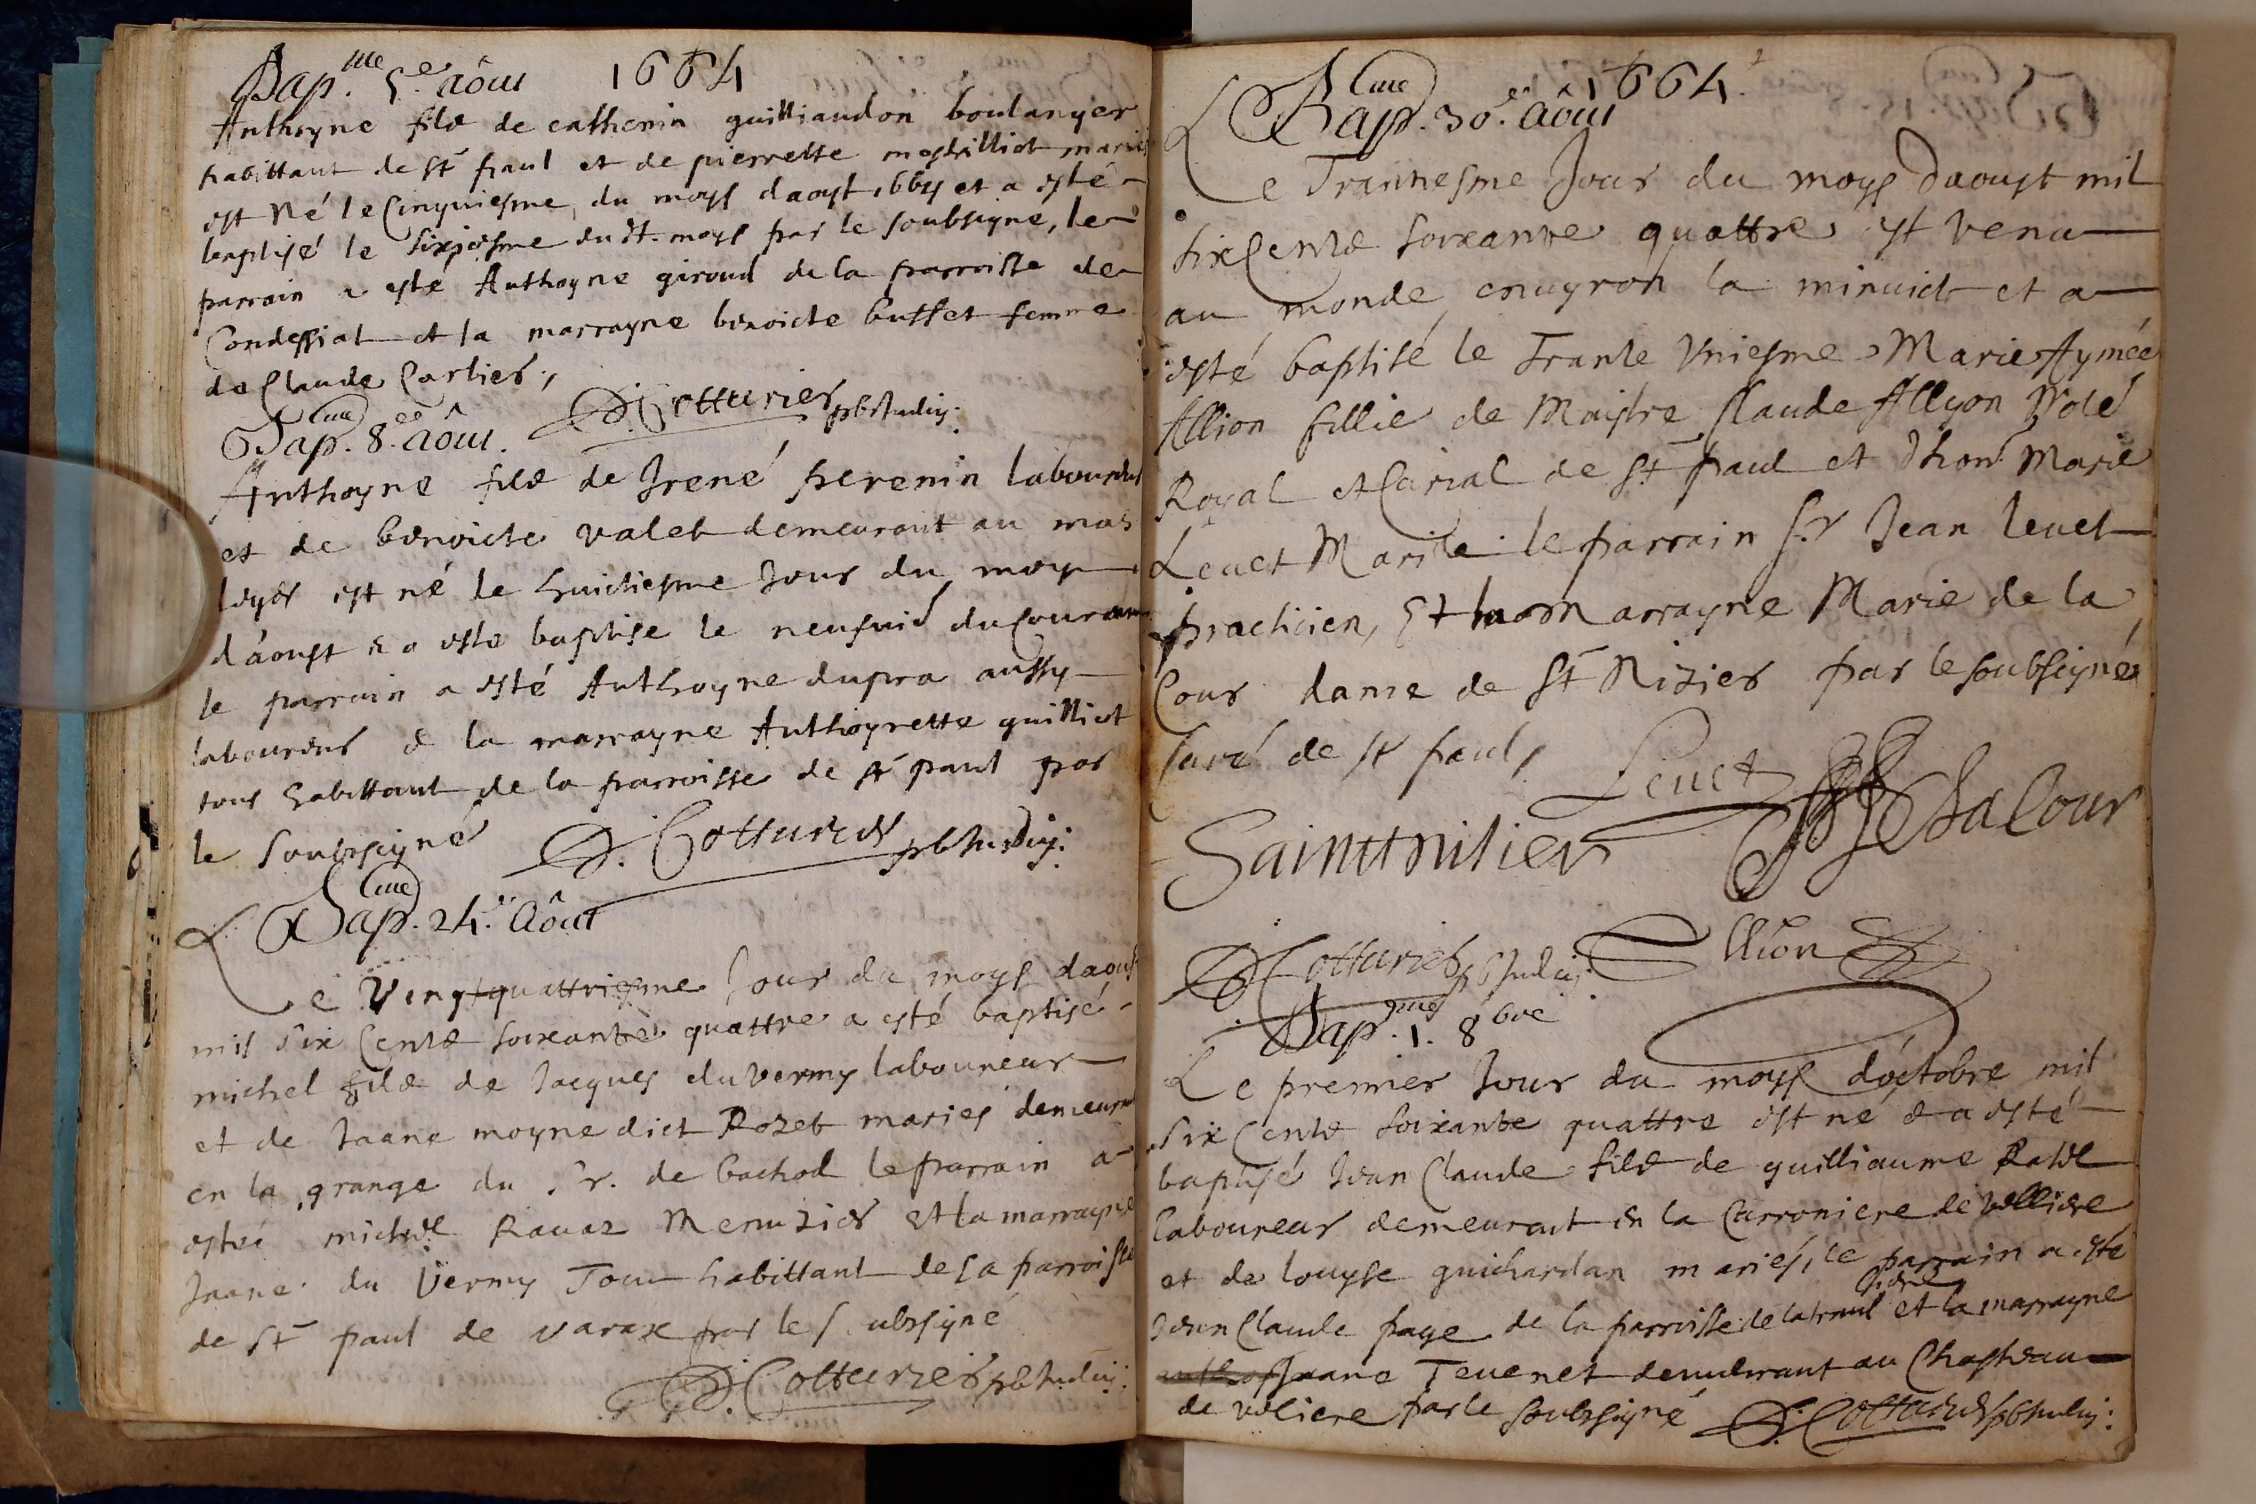 Bap.me 5.e aôut 1664
Anthoyne filz de cathenin guilliaudon boulanger
habittant de st paul et de pierrette mariés
est Né le Cinquiesme du moys daoust 1664 et a esté
baptisé le sixiesme dudt. moys par le soubsigne, le
parrain a esté Anthoyne giroud de la parroisse de
Condessiat et la marrayne benoicte buffet femme
de Claude Carlier,
D. Cotturier
Bap.me 8.e aôut.
Anthoyne filz de Irené perenin laboureur
et de benoicte valet demeurant au mas
est né le huictiesme Jour du moys
d'aoust & a esté baptise le du Courant
le parrain a esté Anthoyne dupra aussy
laboureur & la marrayne Anthoynette guilliot
tous habittant de la parroisse de st paul par
le soubsigné D. Cotturier
Bap.me 24.e Aôut
Le Vingtquattriesme Jour du moys daoust
mil six Centz soixante quattre a esté baptisé
michel filz de Jacques du vermy laboureur
et de Jaane moyne dict Rozet mariés demeurant
en la grange du sr. de bachod le parrain a
esté michel Ravaz Menuzier et la marrayne
Jaane du Vermy Tous habittant de la parroisse
de st paul de varax par le soubsigné
D. Cotturier
1664.
Bap.me 30.e aôut
Le Trantiesme Jour du moys Daoust mil
six Centz soixante quattre est venu
au monde environ la minuict et a
esté baptisé le Trante Vniesme Marie Aymée
Allion fillie de Maistre Claude Allyon Noté
Royal et Curial de st paul et d'hon. Marie
Levet Mariés le parrain S.r Jean levet
practicien, Et la Marrayne Marie de la
Cour dame de st Nizier par le soubsigné
Curé de st paul,
Levet
Sainttnisier De La Cour
D. Cotturier Allion
Bap.me 1. 8bre
Le premier Jour du moys d'octobre mil
six Centz soixante quattre est né & a esté
baptisé Jean Claude filz de guilliaume
laboureur demeurant en la Carroniere de velliere
et de louyse guichardan mariés, le parrain a esté
Jean Claude page de la parroisse de et la marrayne
Jaane Tevenet demeurant au Chasteau
de veliere par le soubsigné D. Cotturier